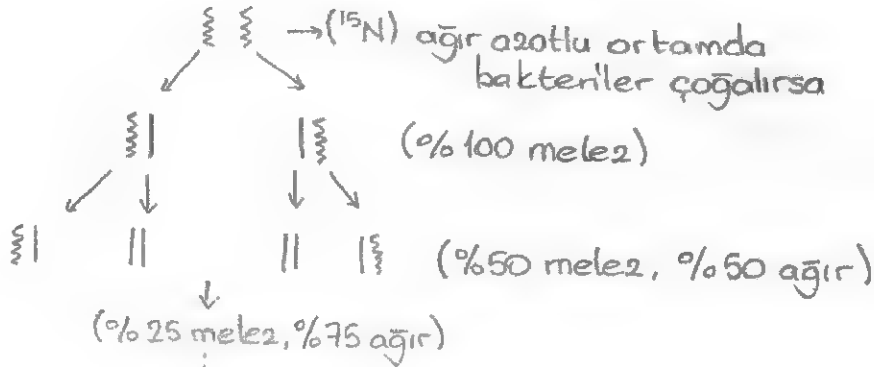 →(¹⁵N) ağır azotlu ortamda
bakteriler çoğalırsa
(%100 melez)
(%50 melez, %50 ağır)
(%25 melez, %75 ağır)